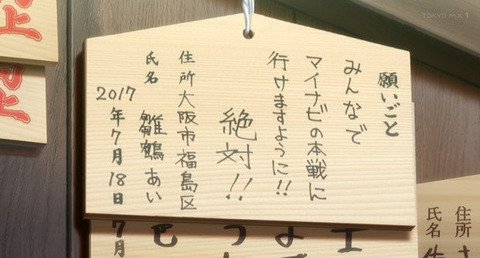 願いごと
みんなで
マイナビの本戦に
行けますように!!
絶対!!
住所大阪市福島区
氏名 雛鶴 あい
2017年7月18日
住所
氏名
TOKYO MX1